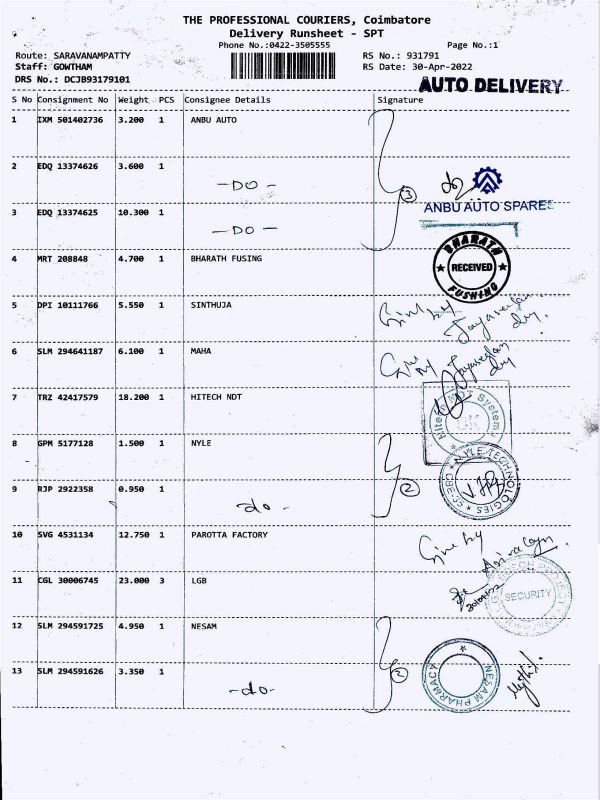 THE PROFESSIONAL COURIERS, Coimbatore
Delivery Runsheet - SPT
Phone No.:0422-3505555 Page No.:1
Route: SARAVANAMPATTY RS No.: 931791
Staff: GOWTHAM RS Date: 30-Apr-2022
DRS No.: DCJB93179101
AUTO DELIVERY
S No Consignment No Weight PCS Consignee Details Signature
1 IXM 501402736 3.200 1 ANBU AUTO
2 EDQ 13374626 3.600 1
-DO-
3
ANBU AUTO SPARES
3 EDQ 13374625 10.300 1
-DO-
4 MRT 208848 4.700 1 BHARATH FUSING
BHARATH
RECEIVED
FUSHING
5 DPI 10111766 5.550 1 SINTHUJA
Give by
6 SLM 294641187 6.100 1 MAHA
Give by
7 TRZ 42417579 18.200 1 HITECH NDT
Hitech NDT Systems
8 GPM 5177128 1.500 1 NYLE
NYLE TECHNOLOGIES
9 RJP 2922358 0.950 1
-do-
2
10 SVG 4531134 12.750 1 PAROTTA FACTORY
Give by
11 CGL 30006745 23.000 3 LGB
SECURITY
12 SLM 294591725 4.950 1 NESAM
2
NESAM PHARMACY
13 SLM 294591626 3.350 1
-do-